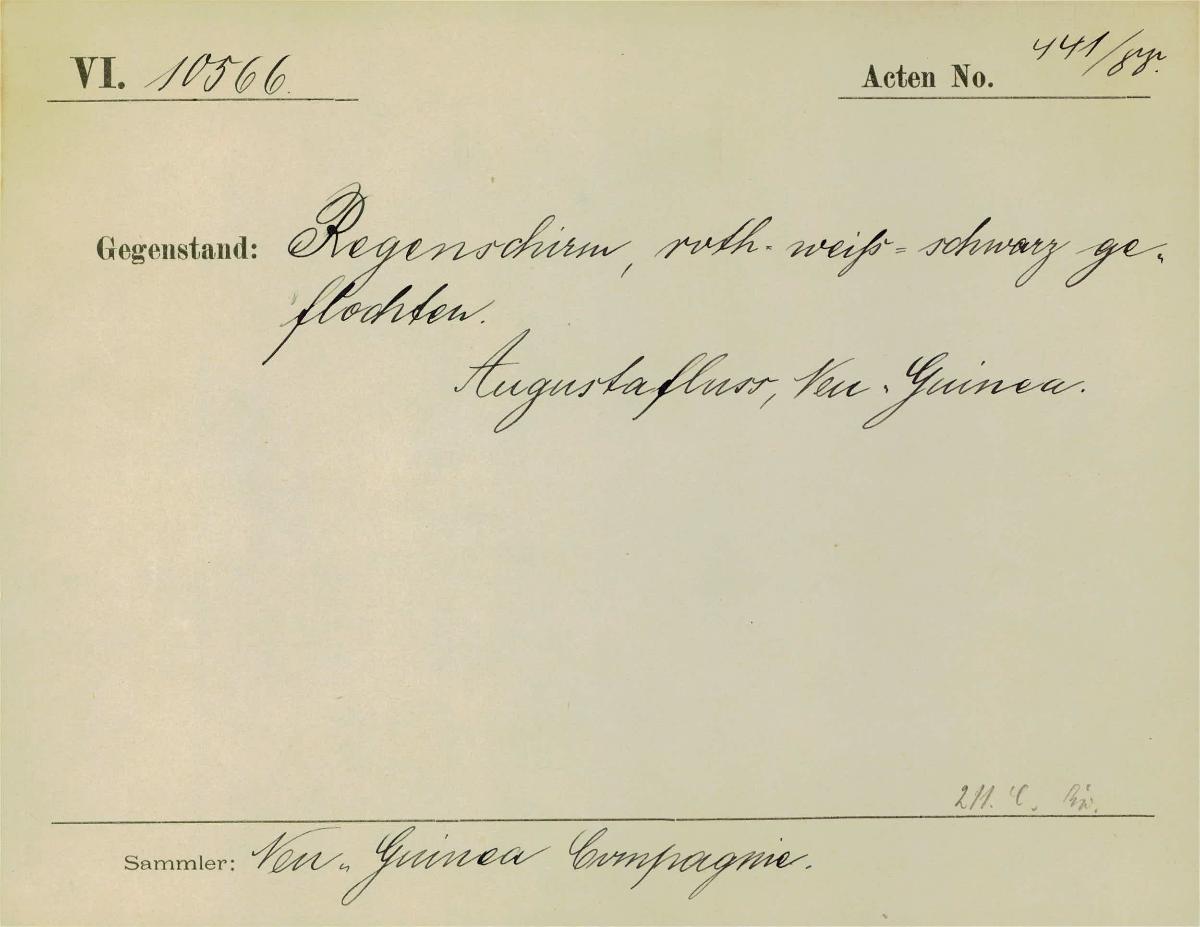 VI. 10566. Acten No. 441/88.
Gegenstand: Regenschirm, roth-weiß-schwarz ge-
flochten.
Augustafluss, Neu-Guinea.
211.
Sammler: Neu-Guinea Compagnie.